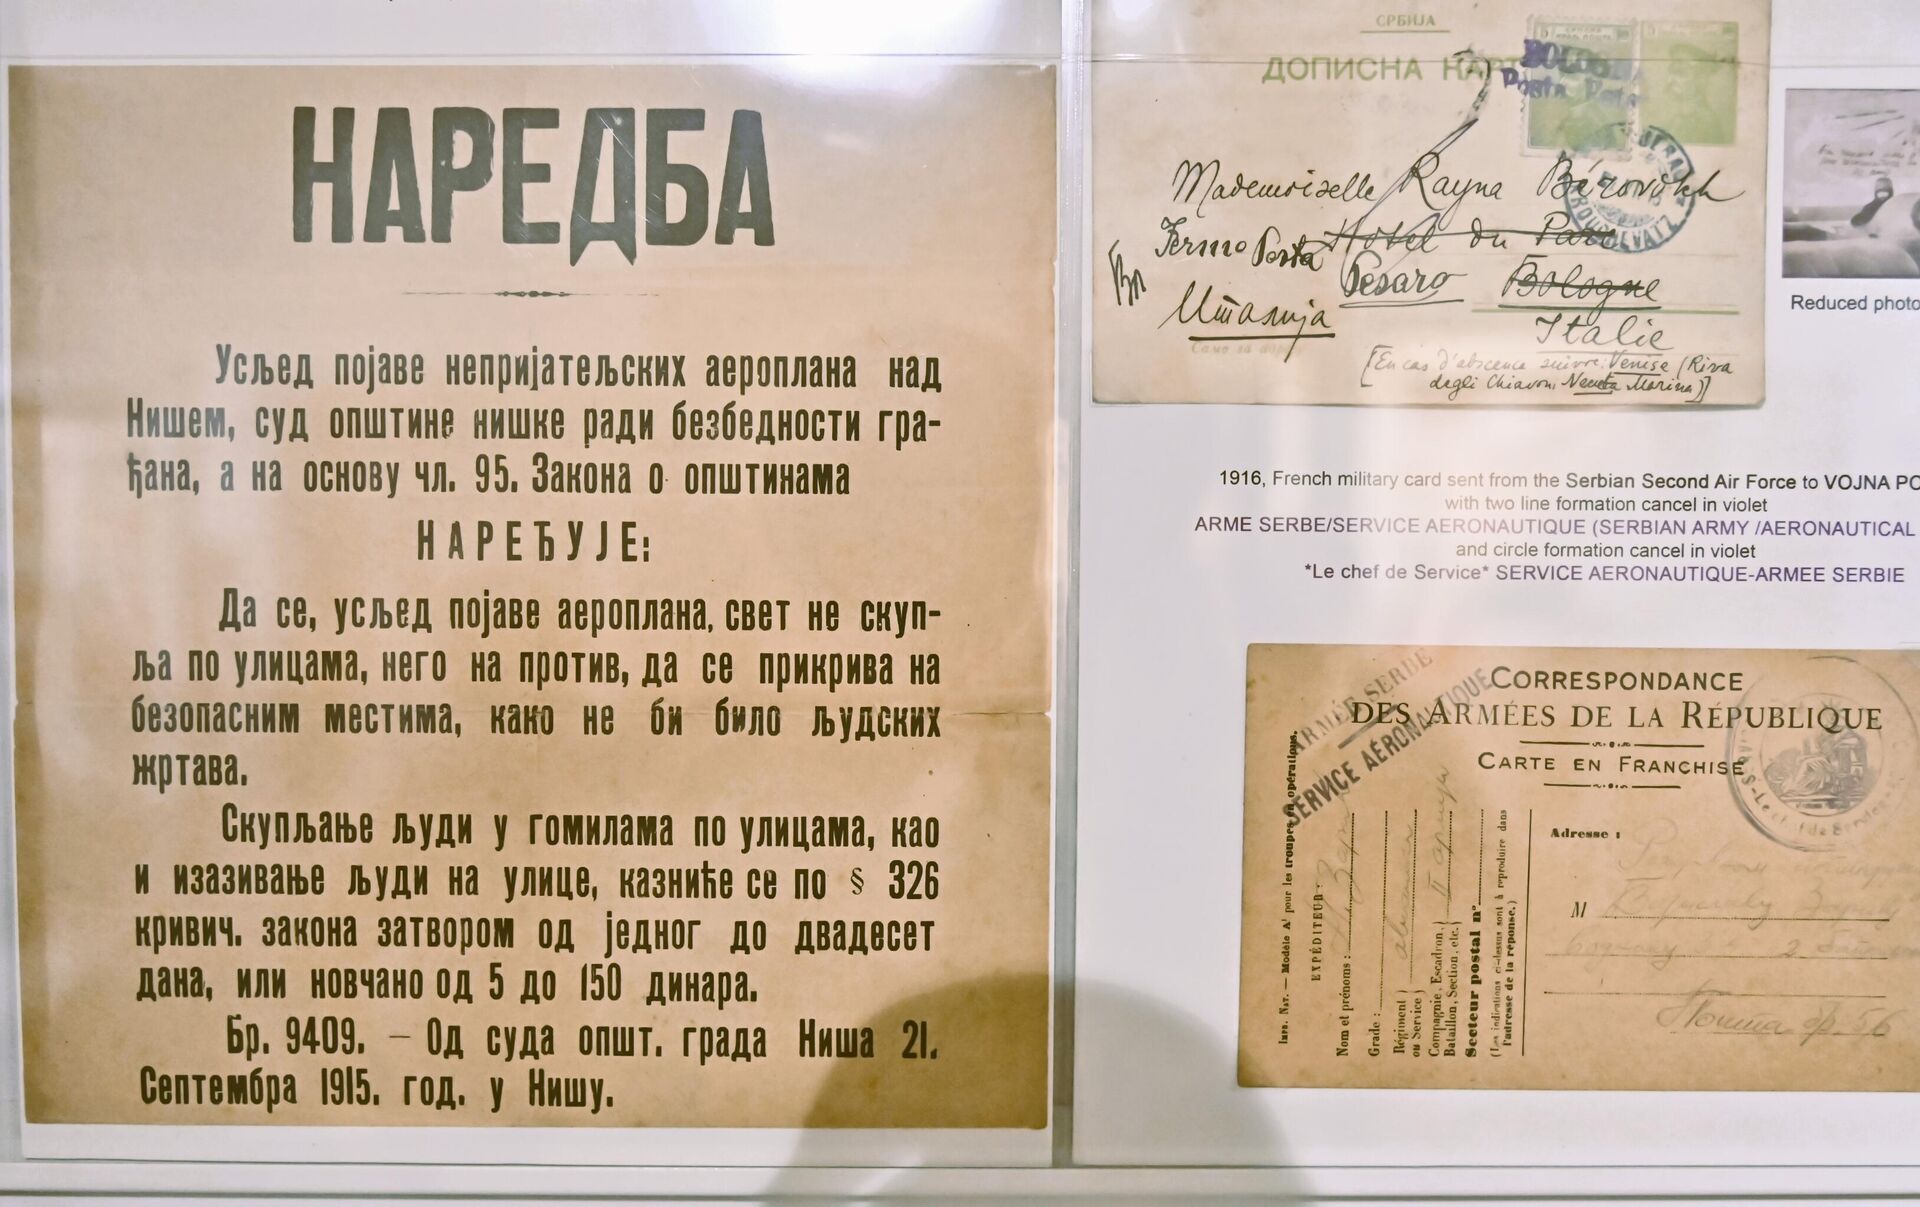 НАРЕДБА
Усљед појаве непријатељских аероплана над
Нишем, суд општине нишке ради безбедности гра-
ђана, а на основу чл. 95. Закона о општинама
НАРЕЂУЈЕ:
Да се, усљед појаве аероплана, свет не скуп-
ља по улицама, него на против, да се прикрива на
безопасним местима, како не би било људских
жртава.
Скупљање људи у гомилама по улицама, као
и изазивање људи на улице, казниће се по § 326
кривич. закона затвором од једног до двадесет
дана, или новчано од 5 до 150 динара.
Бр. 9409. – Од суда општ. града Ниша 21.
Септембра 1915. год. у Нишу.
СРБИЈА
ДОПИСНА КАРТА
BOLOGNA
Posta
Mademoiselle Rayna
Fermo Posta Hotel du Parc
Pesaro Bologne
Италија
Italie
[En cas d'absence suivre: Venise (Riva
degli Chiavoni Marina)]
Reduced photo
1916, French military card sent from the Serbian Second Air Force to VOJNA PO
with two line formation cancel in violet
ARME SERBE/SERVICE AERONAUTIQUE (SERBIAN ARMY /AERONAUTICAL
and circle formation cancel in violet
*Le chef de Service* SERVICE AERONAUTIQUE-ARMEE SERBIE
ARMÉE SERBE
SERVICE AÉRONAUTIQUE
CORRESPONDANCE
DES ARMÉES DE LA RÉPUBLIQUE
CARTE EN FRANCHISE
Adresse :
M
Пошта бр. 56
Impr. Nat. — Modèle A¹ pour les troupes en opérations.
EXPÉDITEUR :
Nom et prénoms :
Grade :
Régiment
ou Service
Compagnie, Escadron,
Bataillon, Section, etc.
Secteur postal n°
(Les indications ci-dessus sont à reproduire dans
l'adresse de la réponse.)